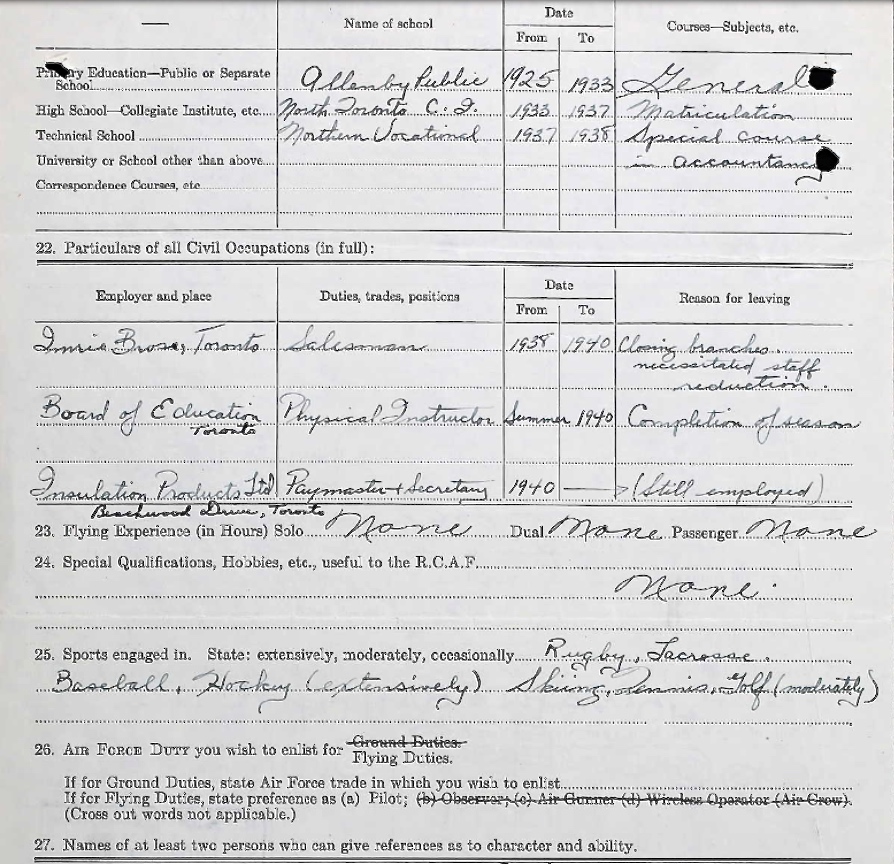 Name of school Date Courses—Subjects, etc.
From To
Primary Education—Public or Separate School Allenby Public 1925 1933 General
High School—Collegiate Institute, etc. North Toronto C. I. 1933 1937 Matriculation
Technical School Northern Vocational 1937 1938 Special Course
University or School other than above in accountancy
Correspondence Courses, etc
22. Particulars of all Civil Occupations (in full):
Employer and place Duties, trades, positions Date Reason for leaving
From To
Imrie Bros, Toronto Salesman 1938 1940 Closing branches.
necessitated staff
reduction.
Board of Education Physical Instructor Summer 1940 Completion of season
Toronto
Insulation Products Ltd Paymaster + Secretary 1940 (Still employed)
Beechwood Drive, Toronto
23. Flying Experience (in Hours) Solo None Dual None Passenger None
24. Special Qualifications, Hobbies, etc., useful to the R.C.A.F.
None.
25. Sports engaged in. State: extensively, moderately, occasionally Rugby, Lacrosse.
Baseball, Hockey (extensively) Skiing, Tennis, Golf (moderately)
26. AIR FORCE DUTY you wish to enlist for Ground Duties.
Flying Duties.
If for Ground Duties, state Air Force trade in which you wish to enlist
If for Flying Duties, state preference as (a) Pilot; (b) Observer; (c) Air Gunner (d) Wireless Operator (Air Crew).
(Cross out words not applicable.)
27. Names of at least two persons who can give references as to character and ability.